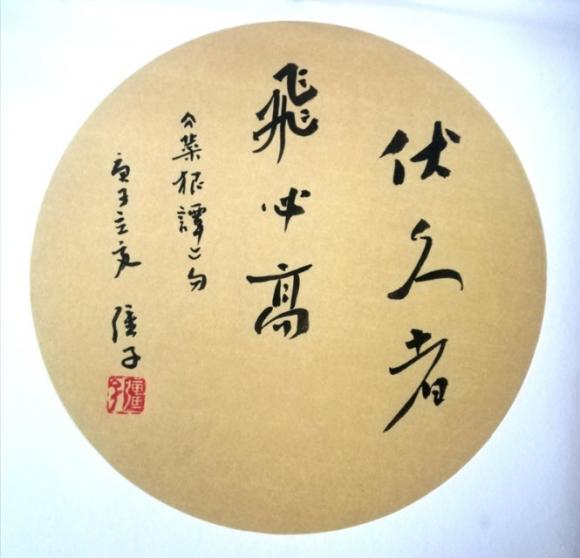 伏久者
飛必高
《菜根譚》句
庚子立夏 子